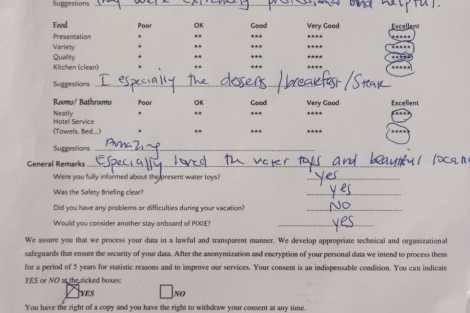 Suggestions They were extremely professional and helpful.
Food Poor OK Good Very Good Excellent
Presentation * ** *** **** *****
Variety * ** *** **** *****
Quality * ** *** **** *****
Kitchen (clean) * ** *** **** *****
Suggestions I especially the desserts / breakfast / Steak
Rooms/ Bathrooms Poor OK Good Very Good Excellent
Neatly * ** *** **** *****
Hotel Service
(Towels, Bed...) * ** *** **** *****
Suggestions Amazing
General Remarks especially loved the water toys and beautiful
Were you fully informed about the present water toys? yes
Was the Safety Briefing clear? yes
Did you have any problems or difficulties during your vacation? NO
Would you consider another stay onboard of PIXIE? yes
We assure you that we process your data in a lawful and transparent manner. We develop appropriate technical and organizational
safeguards that ensure the security of your data. After the anonymization and encryption of your personal data we intend to process them
for a period of 5 years for statistic reasons and to improve our services. Your consent is an indispensable condition. You can indicate
YES or NO at the ticked boxes:
YES NO
You have the right of a copy and you have the right to withdraw your consent at any time.